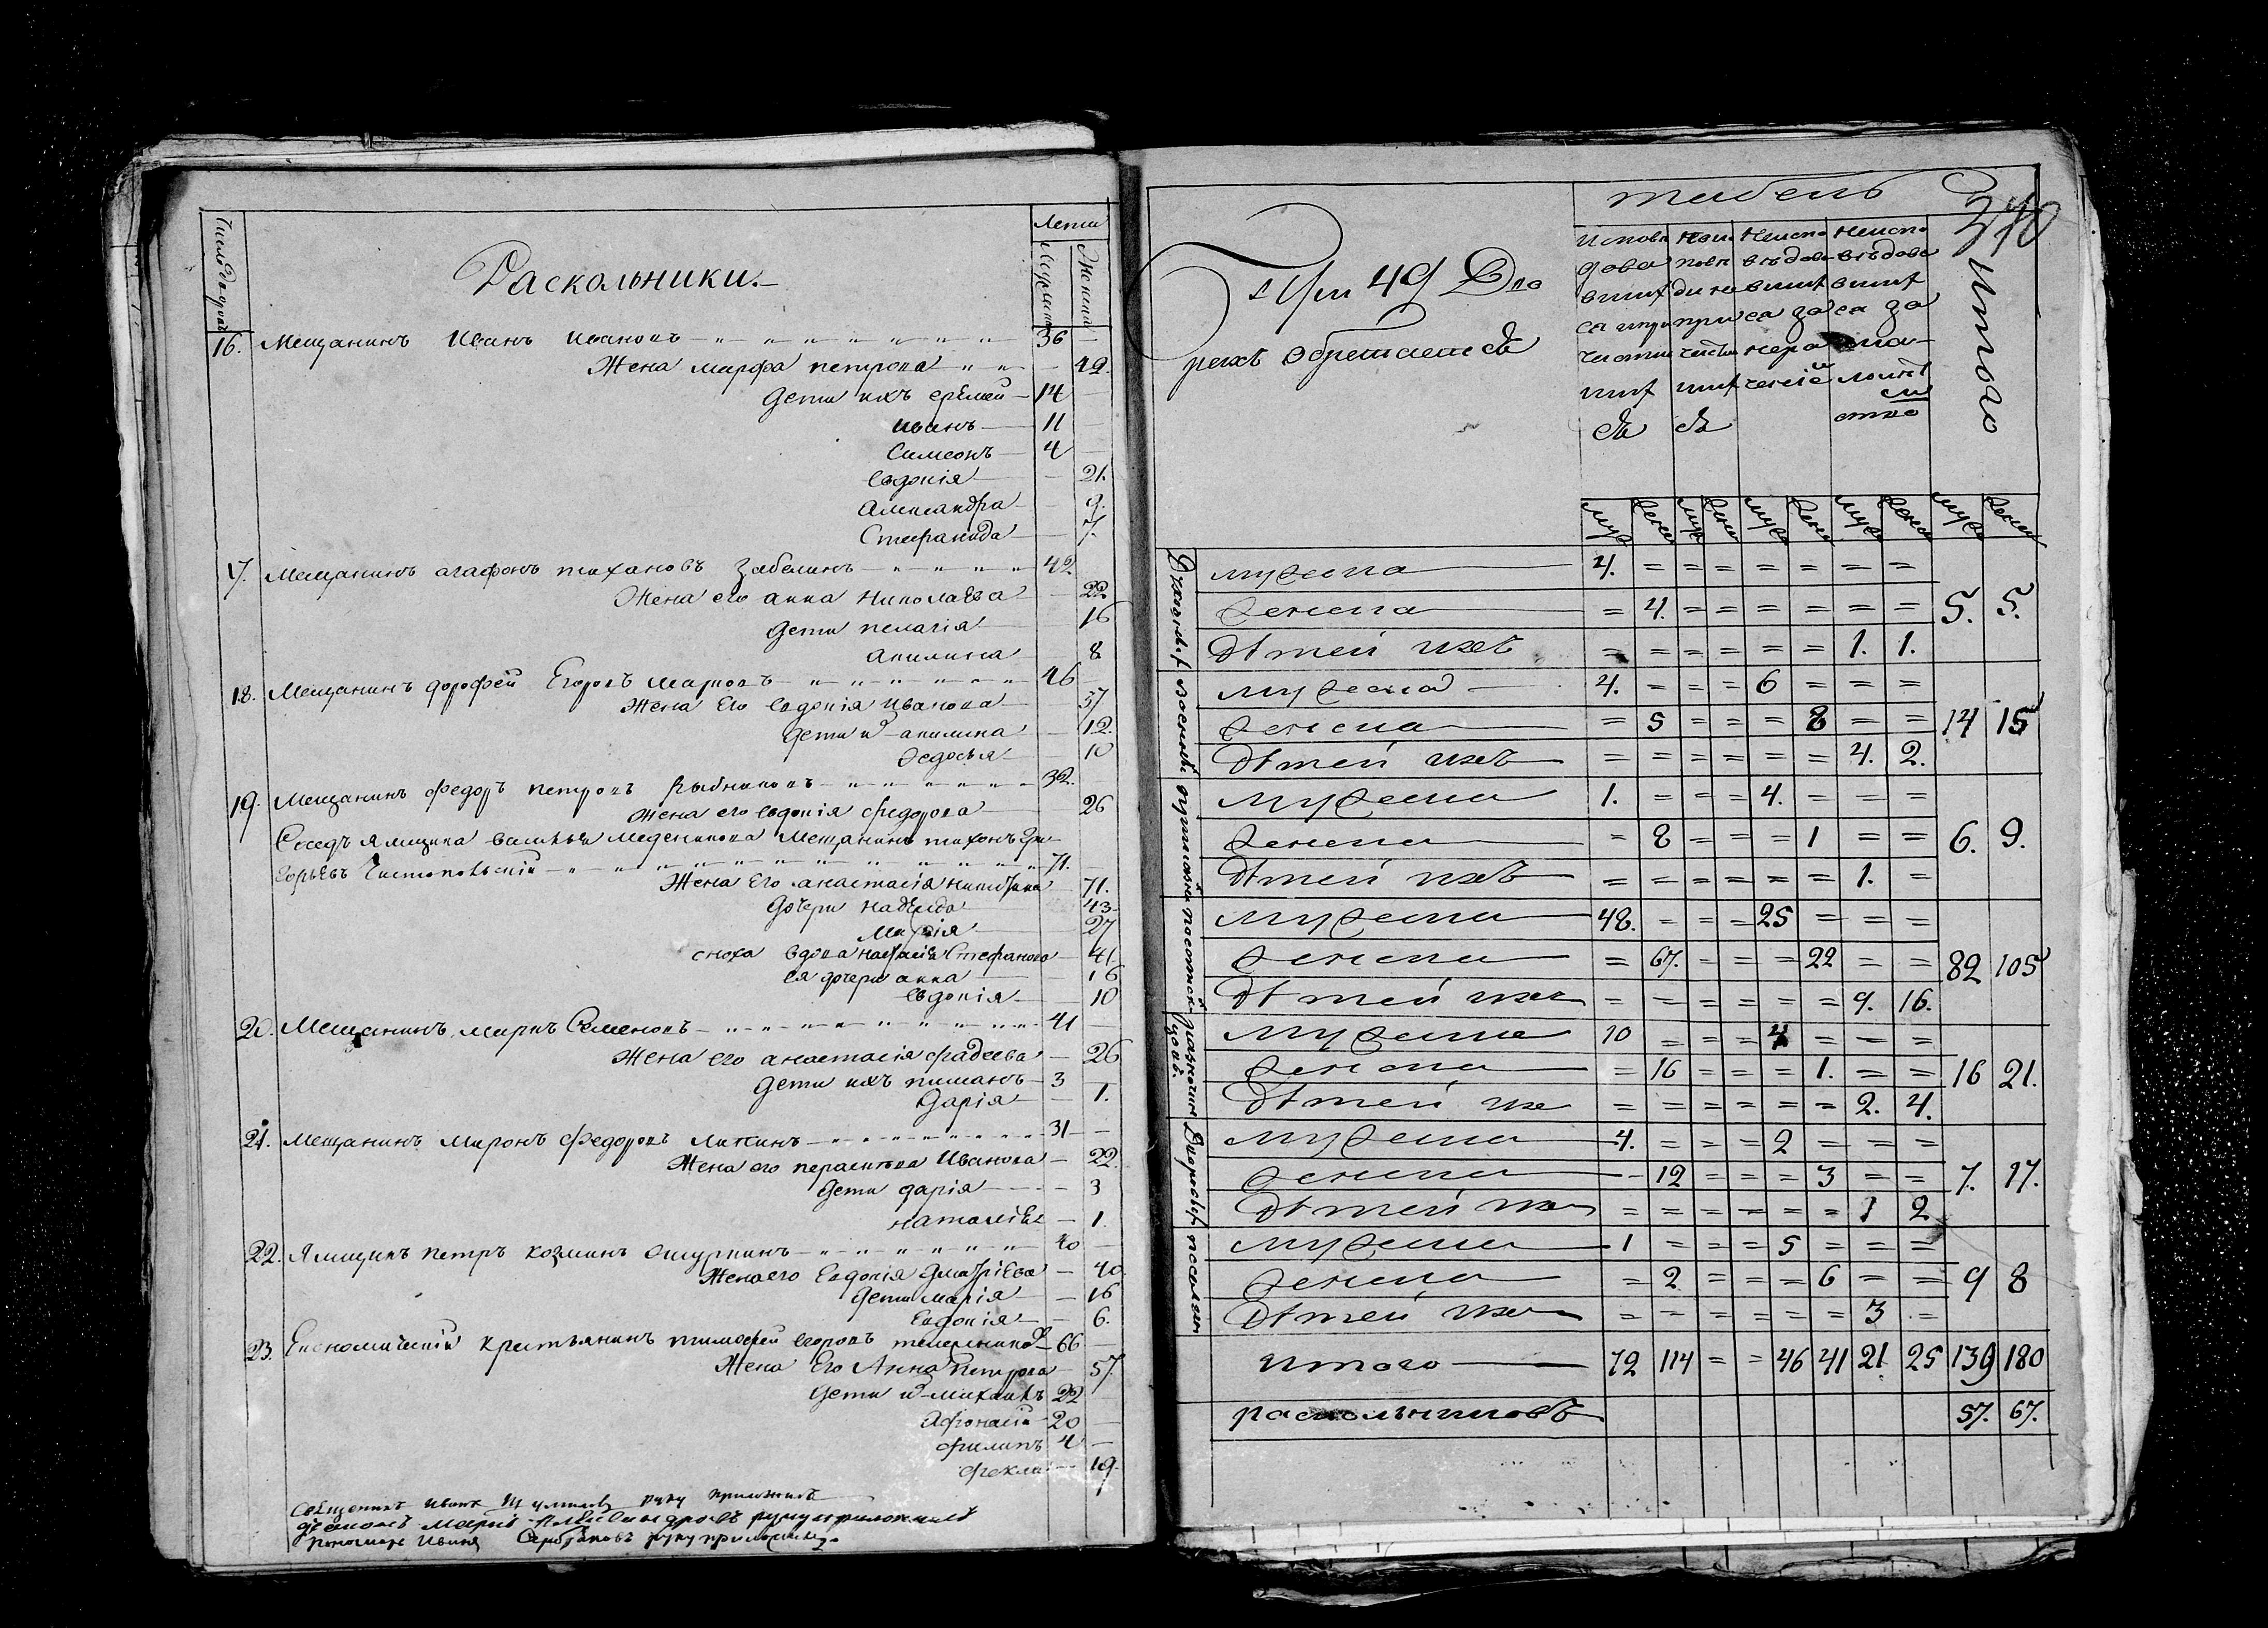 Число дворов
Раскольники.
Лета
Мужска
Женска
16. Мещанинъ Иванъ Ивановъ 36
Жена марфа петрова 42.
Дети ихъ еремей 14
иванъ 11
Симеонъ 4
Евдокія 21.
Александра 9.
Стефанида 7.
17. Мещанинъ агафонъ тихановъ Забелинъ 42
Жена его анна николаева 22
Дети пелагія 16
Акилина 8
18. Мещанинъ дорофей Егоровъ марковъ 46
Жена Его Евдокія иванова 37
Дети и акилина 12.
Федосья 10
19. Мещанинъ Федоръ петровъ Рыбниковъ 32.
Жена его евдокія федорова 26
Соседъ ямщика василья меденикова Мещанинъ тихонъ Гри-
горьевъ Чистопольскій 71.
Жена Его анастасія никитина 71.
Дочери надежда 43
Марія 27
сноха вдова Стефанова 41
ея дочери анна 16
Евдокія 10
20. Мещанинъ маркъ Семеновъ 41
Жена его анастасія фадеева 26
Дети ихъ 3
Дарія 1.
21. Мещанинъ Миронъ Федоровъ Ликинъ 31
Жена его парасковья Иванова 22.
Дети дарія 3
наталія 1.
22. Ямщикъ петръ козминъ Ошуркинъ 40
Жена его Евдокія Дмитріева 40
Дети Марія 16
Евдокія 6.
23. Економическій крестьянинъ тимофей егоровъ 66
Жена Его Анна Петрова 57.
Дети и михаилъ 22
Афонасій 20
филипъ 4
фекла 19.
Священникъ Иванъ Шумиловъ руку приложилъ
діаконъ руку приложилъ
Пономарь Иванъ руку приложилъ
табель
310
При 49 Дво
рехъ обретается
Исповедовавшихся и причастившихся
Неисповедовавшихся за нерачение
Неисповедовавшихся за малолетством
Итого
муж жен муж жен муж жен муж жен муж женск
Духовных
мужеска 4. = = = = = = =
женска = 4. = = = = = = 5. 5.
Детей ихъ = = = = = = 1. 1.
военных
мужеска 4. = = = 6 = = =
женска = 5 = = = 8 = = 14 15
Детей ихъ = = = = = = 4. 2.
мужеска 1. = = = 4. = = =
женска = 8 = = = 1 = = 6. 9.
Детей ихъ = = = = = = 1. =
мужеска 48. = = = 25 = = =
женска = 67. = = = 22 = = 82 105
Детей ихъ = = = = = = 9. 16.
мужеска 10 = = = 4 = = =
женска = 16 = = = 1. = = 16 21.
Детей их = = = = = = 2. 4.
Дворовых
мужеска 4. = = = 2 = = =
женска = 12 = = = 3 = = 7. 17.
Детей их = = = = = = 1 2
поселян
мужеска 1 = = = 5 = = =
женска = 2 = = = 6 = = 9 8
Детей их = = = = = = 3 =
Итого 72 114 = = 46 41 21 25 139 180
раскольниковъ 57. 67.